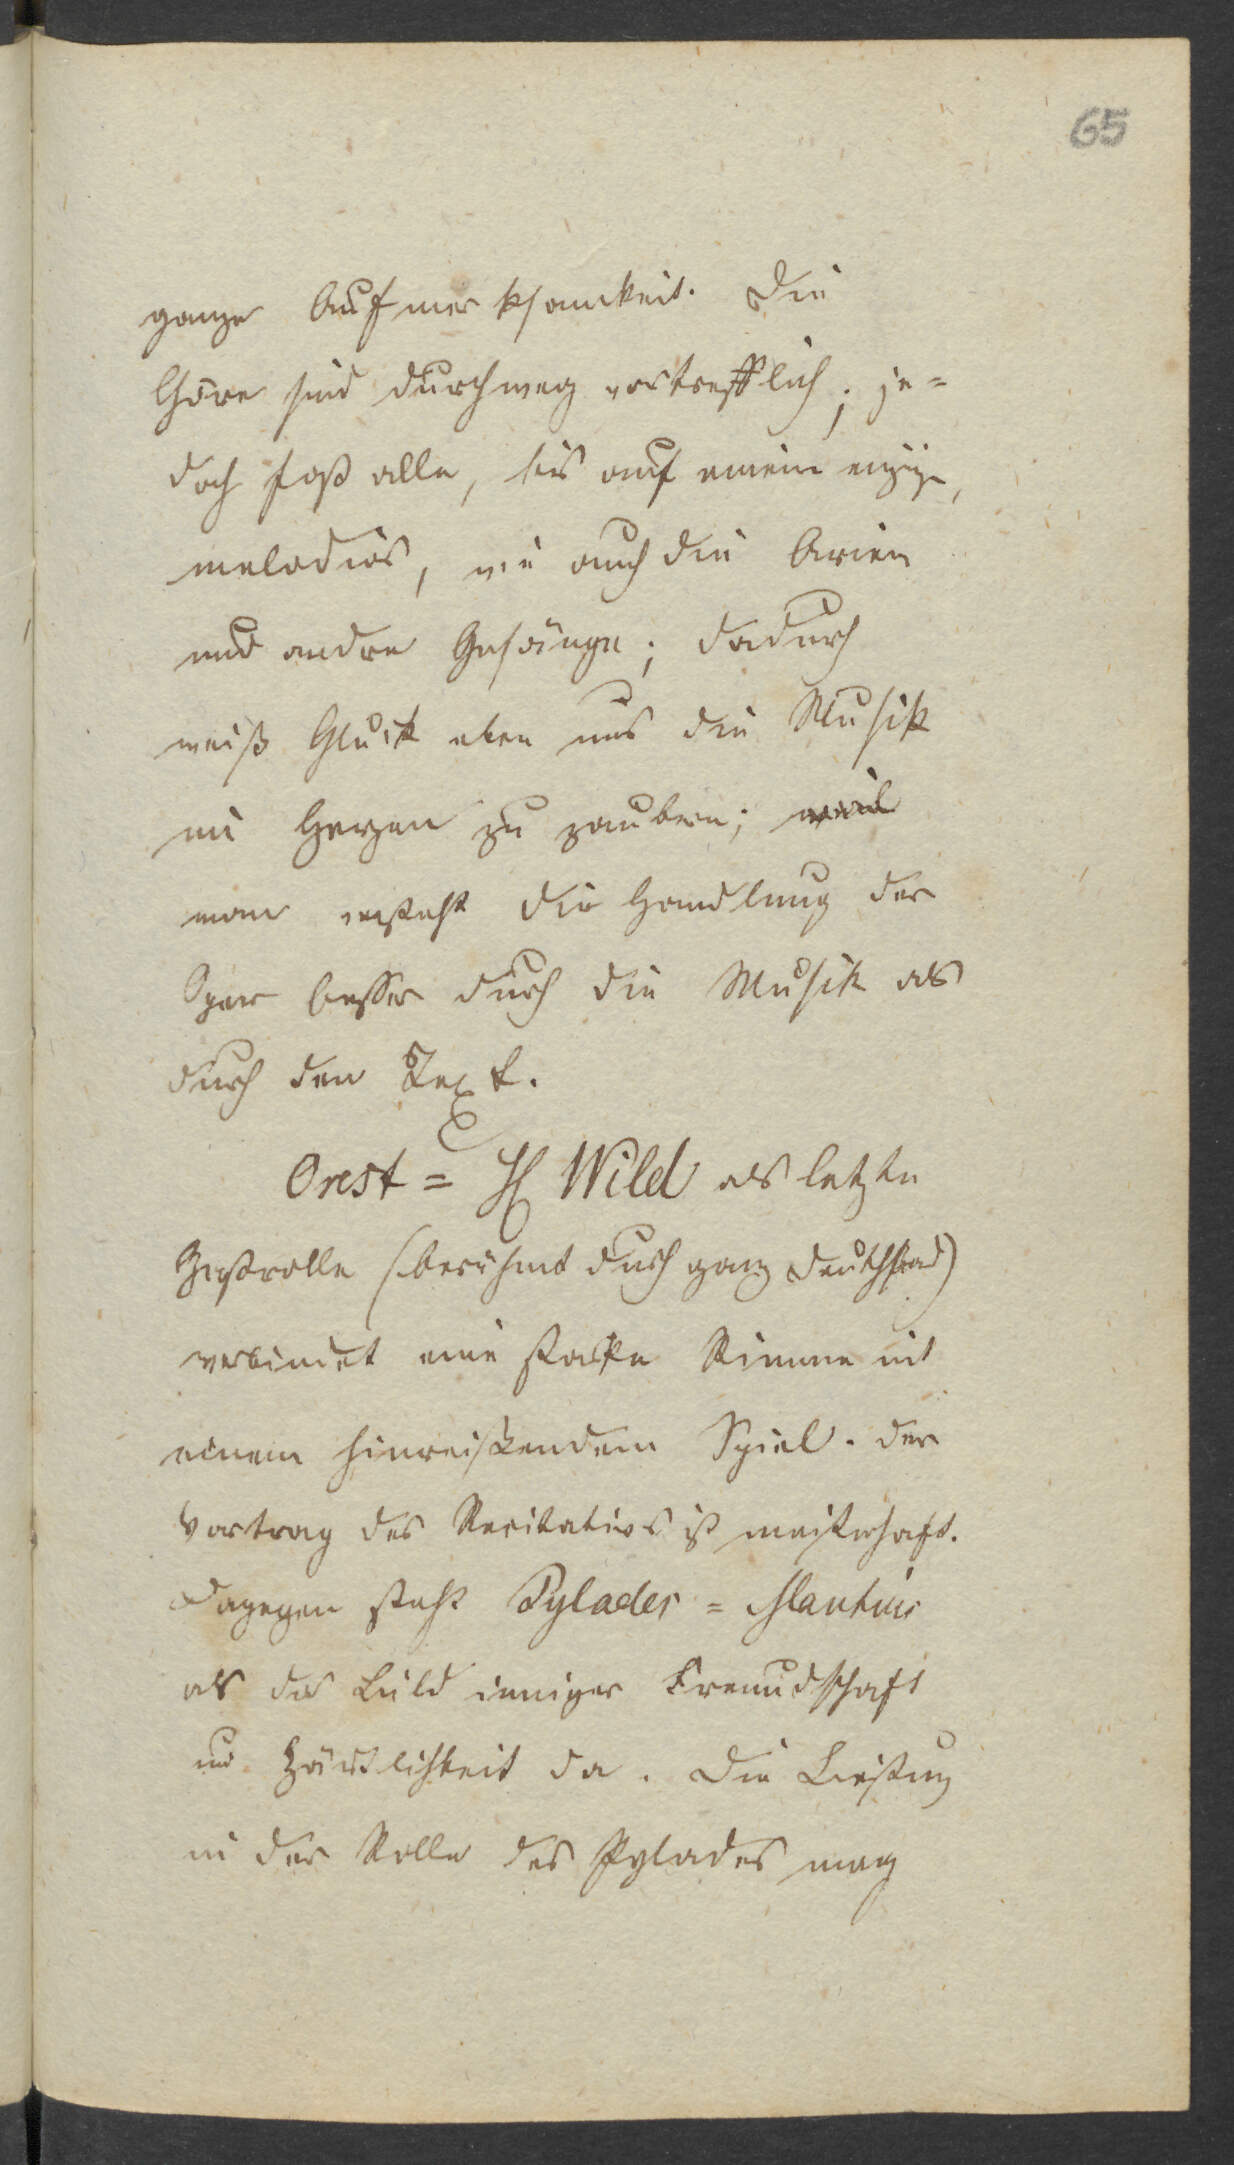 65
ganze Aufmerksamkeit. Die
Chöre sind durchweg vortrefflich; je=
doch fast alle, bis auf einen einzigen,
melodiös, wie auch die Arien
und andre Gesänge; dadurch
weiß Gluck eben uns die Musik
ins Herzen zu zaubern; weil
man versteht die Handlung der
Oper besser durch die Musik als
durch den Text.
Orest = H Wild als letzte
Gastrolle (berühmt durch ganz Deutschland)
verbindet eine starke Stimme mit
einem hinreißendem Spiel. Der
Vortrag des Recitativs ist meisterhaft.
Dagegen steht Pylades =
als das Bild inniger Freundschaft
und Zärtlichkeit da. Die Leistung
in der Rolle des Pylades mag